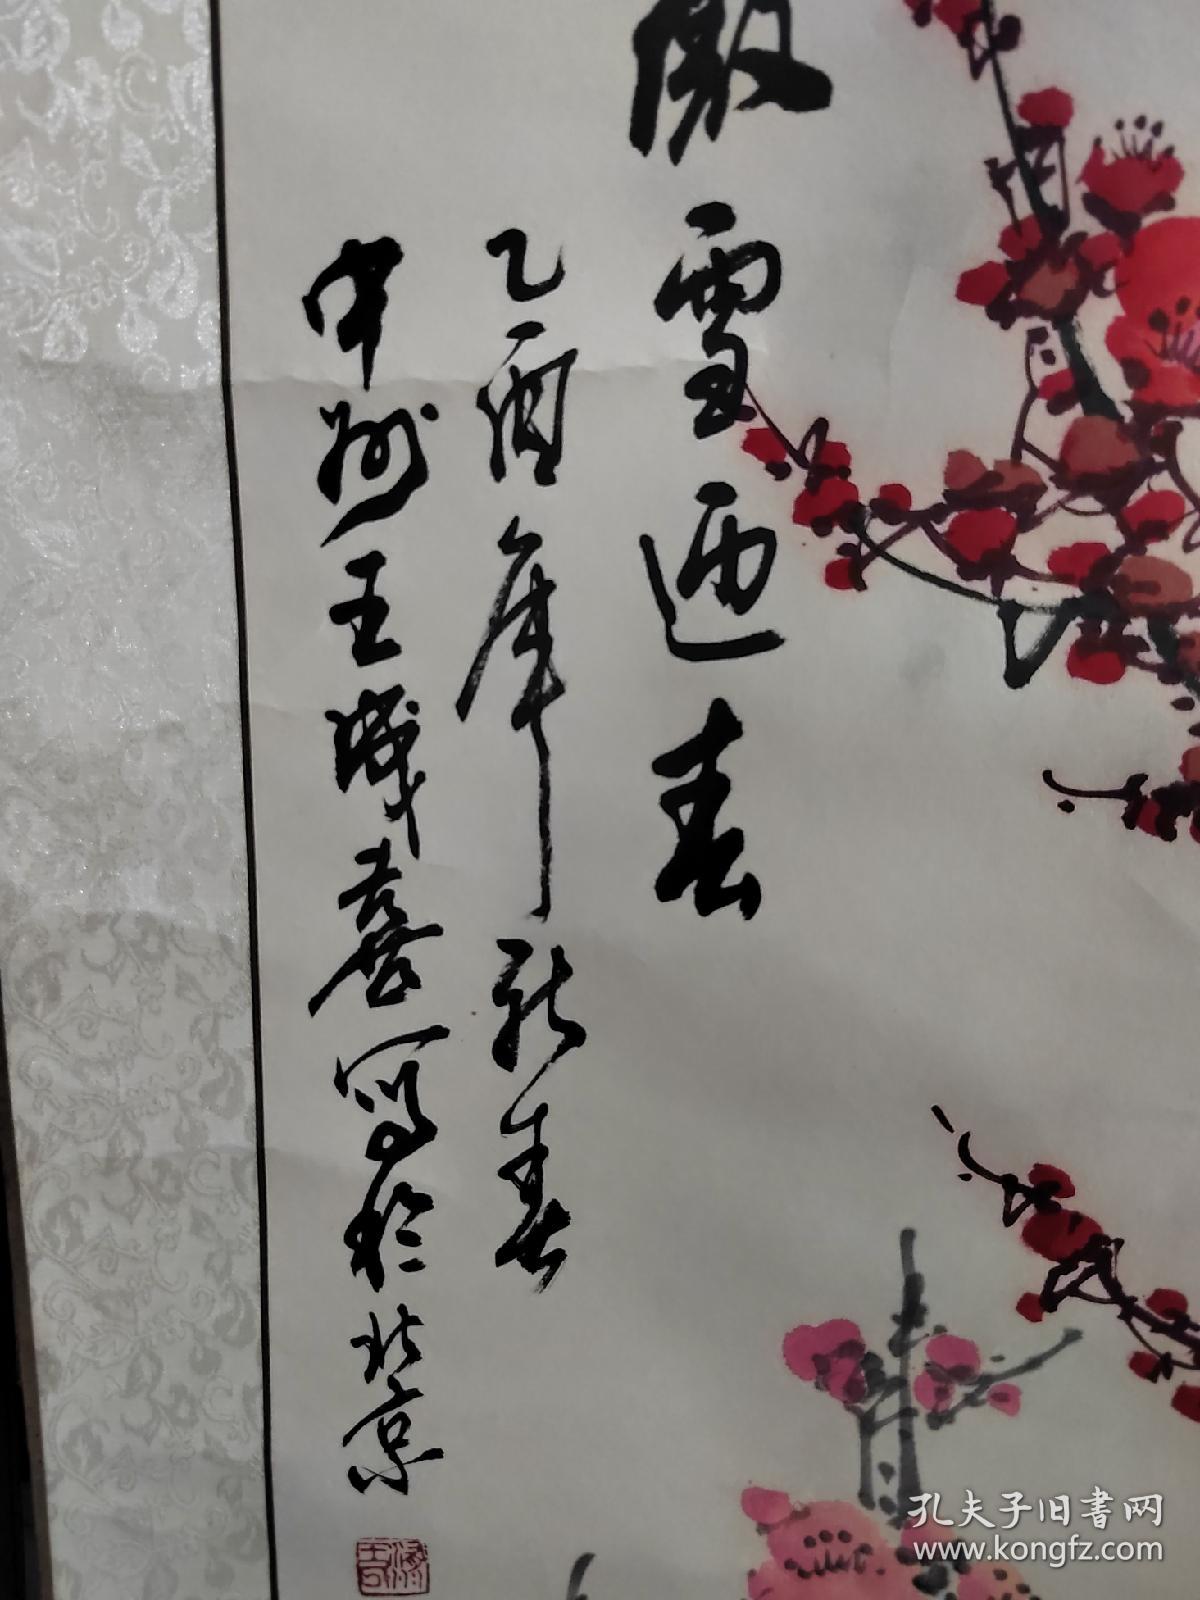 傲雪迎春
乙酉年新春
中州王成喜写於北京
孔夫子旧書网
www.kongfz.com